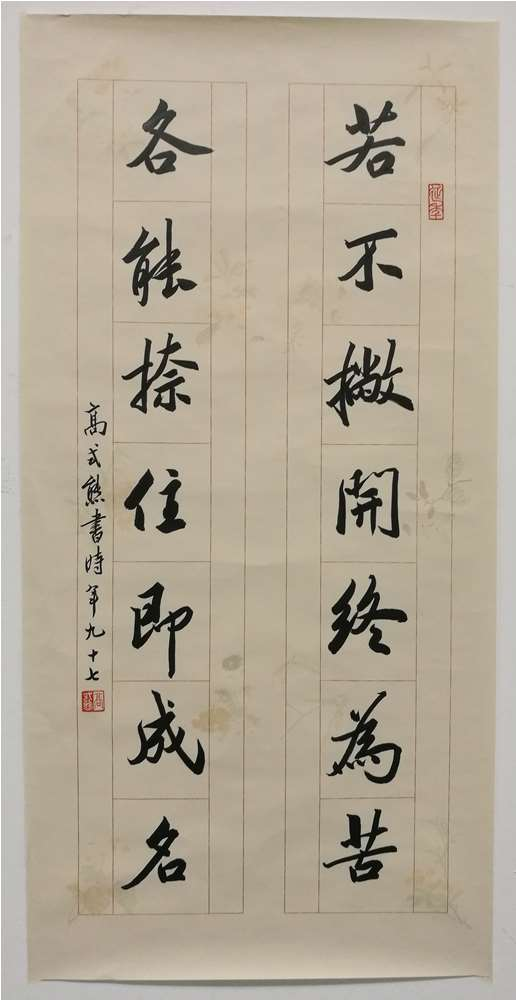 若不撇開終為苦
各能捺住即成名
高式熊書時年九十七
延年